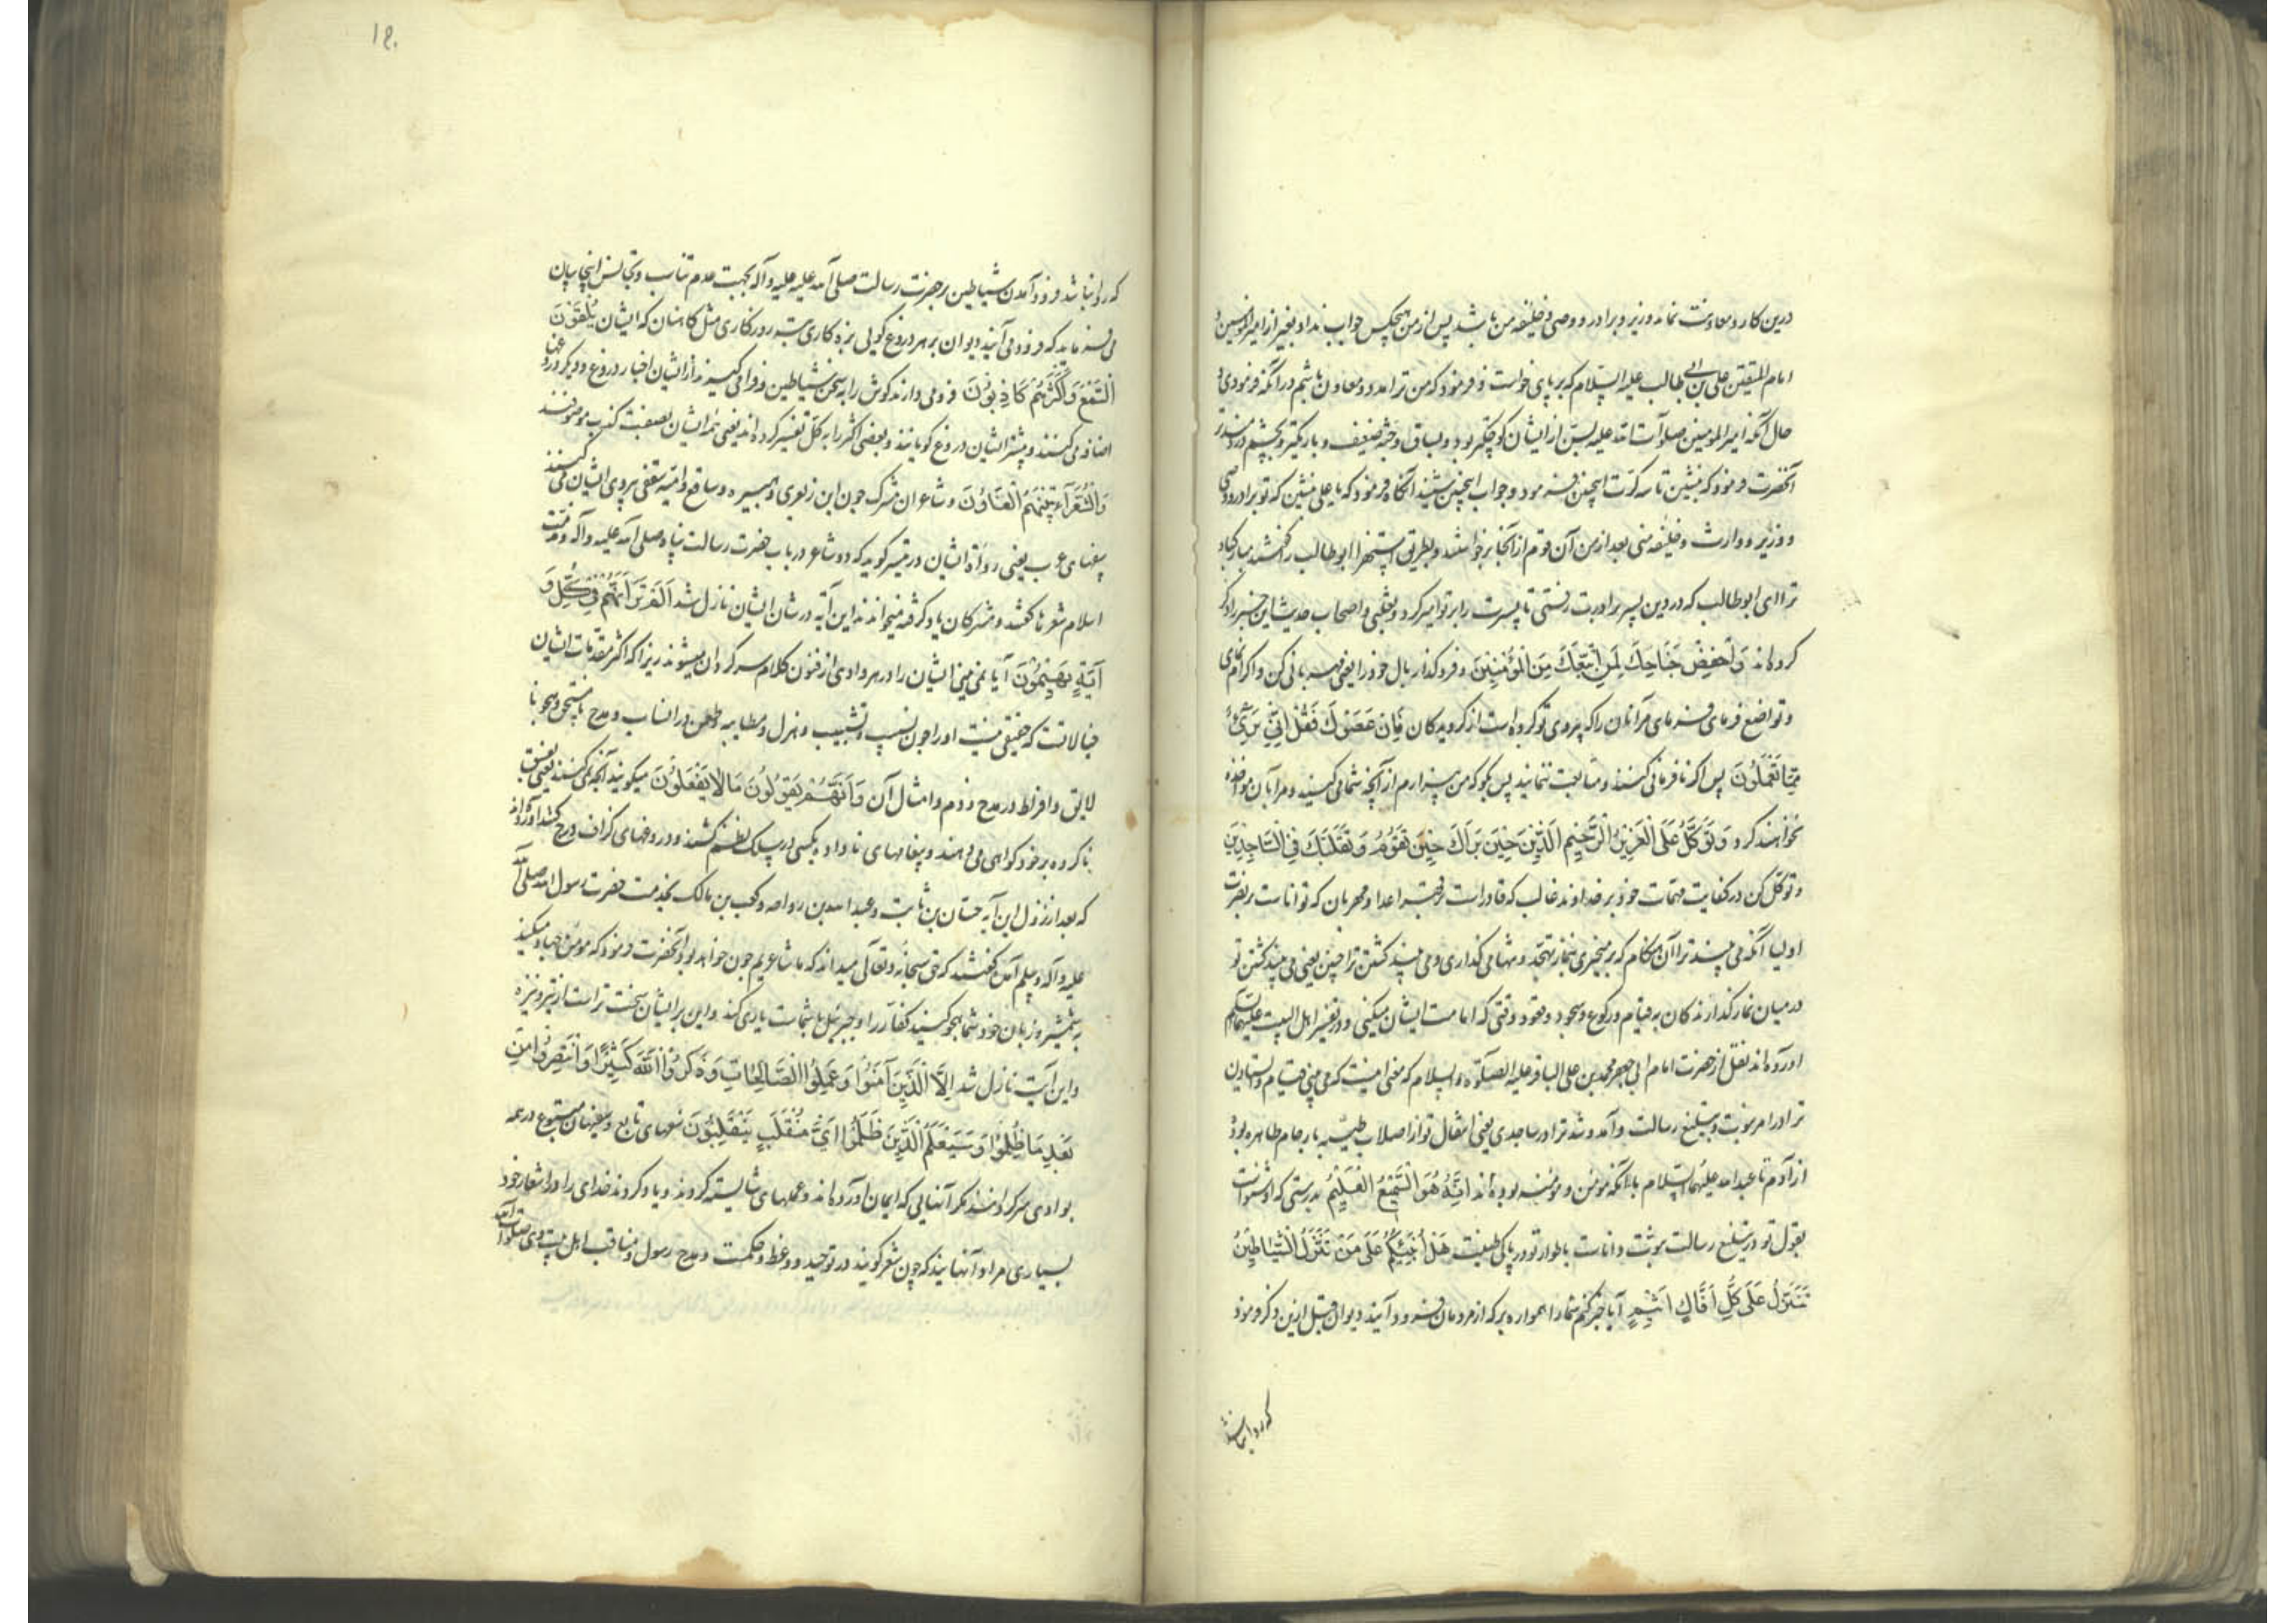 درین کار و معاونت نماند وزیر و برادر و وصی و خلیفه من باشد پس از من هیچکس جواب نداد بغیر از امیر المؤمنین و
امام المتقین علی بن ابی طالب علیه السلام که بر پای خواست و فرمود که من ترا مدد و معاون باشم در آنکه فرمودی و
حال آنکه امیر المومنین صلوات الله علیه بسن از ایشان کوچکتر بود و بساق و جثه ضعیف و باریکتر و بچشم
آنحضرت فرمود که بنشین تا سه کرت اینچنین فرمود و جواب اینچنین شنید آنکاه فرمود که یا علی بنشین که تو برادر و وصی
و وزیر و وارث و خلیفه منی بعد از من آن قوم از آنجا برخواستند و بطریق استهزا ابو طالب را گفتند مبارکباد
ترا ای ابو طالب که در دین پسر برادرت رفتی تا پسرت را بر تو امیر کرد و ثعلبی و اصحاب حدیث این خبر را ذکر
کرده‌اند وَاخْفِضْ جَنَاحَكَ لِمَنِ اتَّبَعَكَ مِنَ الْمُؤْمِنِينَ و فروکذار بال خود را یعنی مهربانی کن و اکرام نمای
و تواضع فرمای مر آنان را که پیروی تو کرده است از کرویدکان فَاِنْ عَصَوْكَ فَقُلْ اِنِّي بَرِيءٌ
مِمَّا تَعْمَلُونَ پس اکر نافرمانی کنند و متابعت ننمایند پس بکو که من بیزارم از آنچه شما می کنید و مرا بآن مواخذه
نخواهند کرد وَتَوَكَّلْ عَلَى الْعَزِيزِ الرَّحِيمِ الَّذِي حِينَ يَرَاكَ حِينَ تَقُومُ وَتَقَلُّبَكَ فِي السَّاجِدِينَ
و توکل کن در کفایت مهمات خود بر خداوند غالب که قادر است بر قهر اعدا و مهربان که توانا ست بر نصرت
اولیا آنکه می بیند ترا آن هنکام که بر میخیزی بنماز تهجد و تنها می کذاری و می بیند کشتن ترا حین یعنی می بیند کشتن تو
در میان نماز کذارندکان به قیام و رکوع و سجود و قعود وقتی که امامت ایشان میکنی و در تفسیر اهل البیت علیهم السلم
آورده‌اند نقل از حضرت امام ابی جعفر محمد بن علی الباقر علیه الصلوة والسلام که معنی اینست که می بینی قیام و استادن
ترا در امر نبوت و تبلیغ رسالت و آمد و شد ترا در ساجدین یعنی انتقال تو از اصلاب طیبه بارحام طاهره بود
از آدم تا عبد الله علیهما السلام با آنکه مومن و مومنه بوده‌اند اِنَّهُ هُوَ السَّمِيعُ الْعَلِيمُ بدرستی که او شنواست
بقول تو در تبلیغ رسالت نبوت و داناست باطوار تو در پاکی طینت هَلْ اُنَبِّئُكُمْ عَلَى مَنْ تَنَزَّلُ الشَّيَاطِينُ
تَنَزَّلُ عَلَى كُلِّ اَفَّاكٍ اَثِيمٍ آیا خبر کنم شما را همواره بر که از مردمان فرود آیند دیوان قبل ازین ذکر فرمود
که روا نباشد
١٤٠
که روا نباشد فرود آمدن شیاطین بر حضرت رسالت صلی الله علیه وآله بجهت عدم تناسب و تجانس اینجا بیان
می فرماید که فرود می آیند دیوان بر هر دروغ کویی بزه کاری مثل کاهنان که ایشان يُلْقُونَ
السَّمْعَ وَاَكْثَرُهُمْ كَاذِبُونَ فرو می دارند کوش را به سخن شیاطین و فرا می کیرند از ایشان اخبار دروغ و دیگر دروغها
اضافه می کنند و بیشتر ایشان دروغ کویانند و بعضی اکثر را به کل تفسیر کرده‌اند یعنی همه ایشان بصفت کذب موصوفند
وَالشُّعَرَآءُ يَتَّبِعُهُمُ الْغَاوُونَ و شاعران مشرک چون ابن زبعری و هبیره و سافع و امیه ثقفی پیروی ایشان می کنند
سفهای عرب یعنی رواة ایشان در تیسیر کوید که دو شاعر در باب حضرت رسالت پناه صلی الله علیه وآله و مذمت
اسلام شعرها کفتند و مشرکان یاد کرفته میخواندند این آیه در شان ایشان نازل شد اَلَمْ تَرَ اَنَّهُمْ فِي كُلِّ وَ
اَيةٍ يَهِيمُونَ آیا نمی بینی ایشان را در هر وادی از فنون کلام سر کردان میشوند زیرا که اکثر مقدمات ایشان
خیالاتست که حقیقتی نیست او را چون نسیب و تشبیب و هزل و مطایبه و طعن در انساب و مدح نا مستحق و هجو نا
لایق و افراط در مدح و ذم و امثال آن وَاَنَّهُمْ يَقُولُونَ مَا لَا يَفْعَلُونَ میکویند آنچه نمی کنند یعنی بفسق
ناکرده بر خود کواهی می دهند و پیغامهای نا داده بکسی در سلک نظم کشند و دروغهای کزاف درج کنند آورده‌اند
که بعد از نزول این آیه حسان بن ثابت و عبد الله بن رواحه و کعب بن مالک بخدمت حضرت رسول الله صلی الله
علیه وآله وسلم آمده کفتند که حق سبحانه وتعالی میداند که ما شاعریم چون خواهد بود آنحضرت فرمود که مومن جهاد میکنید
به شمشیر و زبان خود شما هجو کنید کفار را و جبرئیل با شماست یاری کند و این بر ایشان سخت تر است از تیر و نیزه
و این آیت نازل شد اِلَّا الَّذِينَ آمَنُوا وَعَمِلُوا الصَّالِحَاتِ وَذَكَرُوا اللّٰهَ كَثِيرًا وَانْتَصَرُوا مِنْ
بَعْدِ مَا ظُلِمُوا وَسَيَعْلَمُ الَّذِينَ ظَلَمُوا اَيَّ مُنْقَلَبٍ يَنْقَلِبُونَ شعرای تابع و سفیهان متبوع در همه
بوادی سرکردانند مکر آنهایی که ایمان آورده‌اند و عملهای شایسته کردند و یاد کردند خدای را در اشعار خود
بسیاری مراد آنهایند که چون شعر کویند در توحید و وعظ و حکمت و مدح رسول و مناقب اهل بیت وی صلوات الله